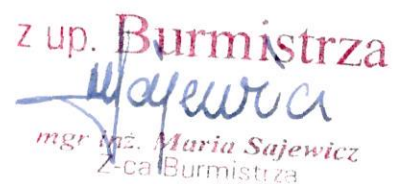 z up. Burmistrza
Majewicz
mgr inż. Maria Sajewicz
Z-ca Burmistrza